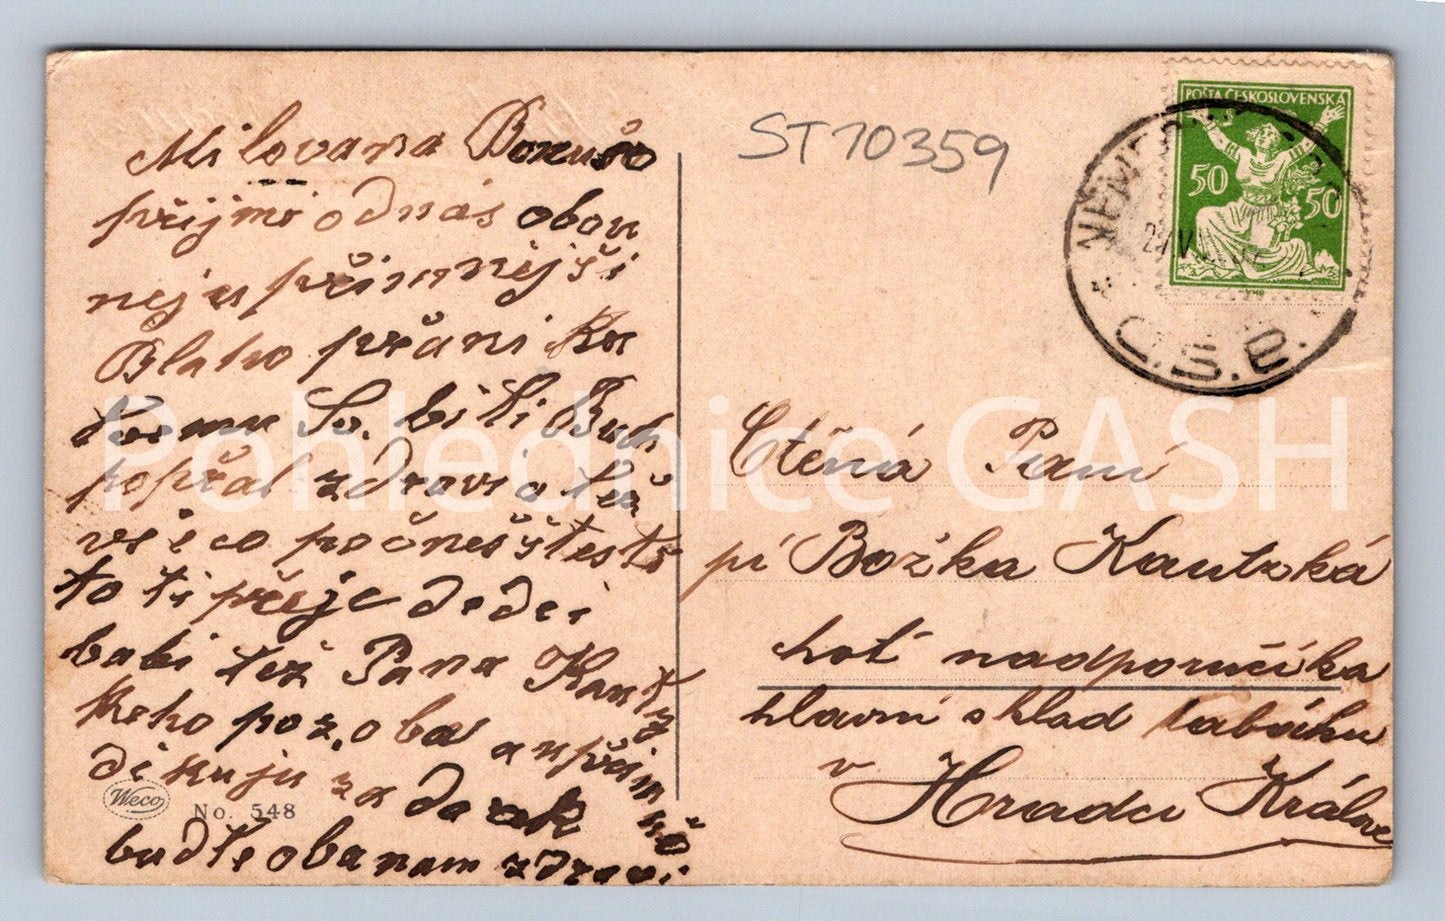 Milovana Bonušo
přijmi odnás obou
nejupřimnejši
Blaho přáni ku
tvemu Sv. bi ti Buh
popřal zdravi a též
vše co počneš štesti
to ti přeje deda i
babi též Pana Kautz
keho poz. oba a upřimně
dikuju za darek
budte oba nam zdravi
Weco
No. 548
ST10359
POŠTA ČESKOSLOVENSKÁ
50 50
Č.S.B.
Ctěná Paní
pí Božka Kautzká
hoť nadporučíka
hlavní sklad tabáku
v Hradci Králové
Pohlednice GASH